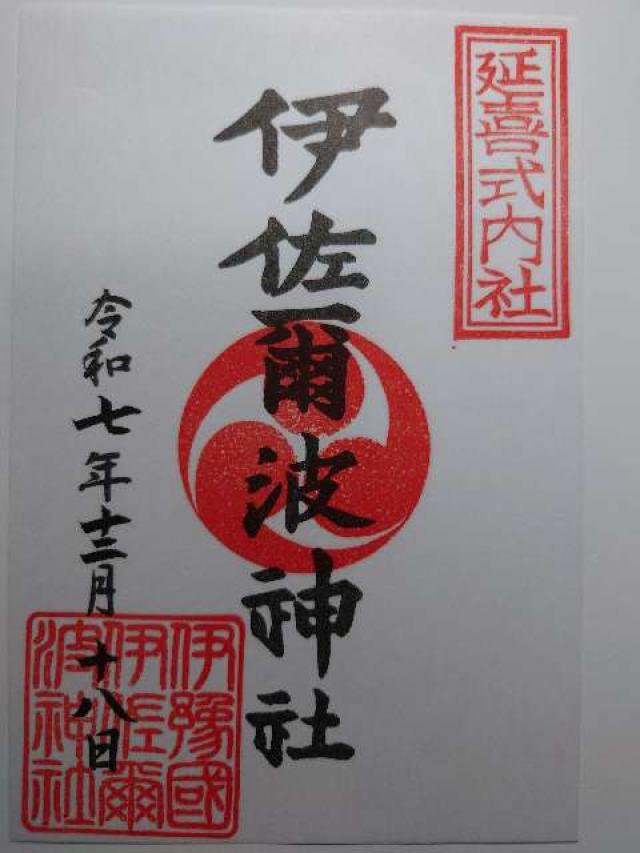 延喜式内社
伊佐爾波神社
令和七年十二月十八日
伊豫國
伊佐爾
波神社